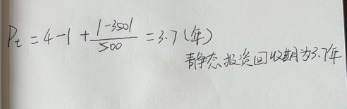 Pt = 4-1 + |-350|/500 = 3.7 (年)
静态投资回收期为3.7年